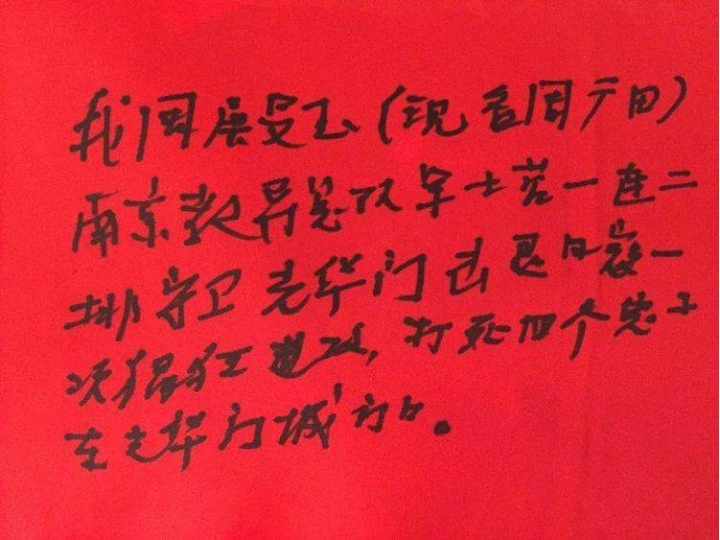 我周展受玉(现名周广田)
南京教导总队军士营一连二
排守卫光华门击退日寇一
次猖狂进攻,打死四个鬼子
在光华门城门口。